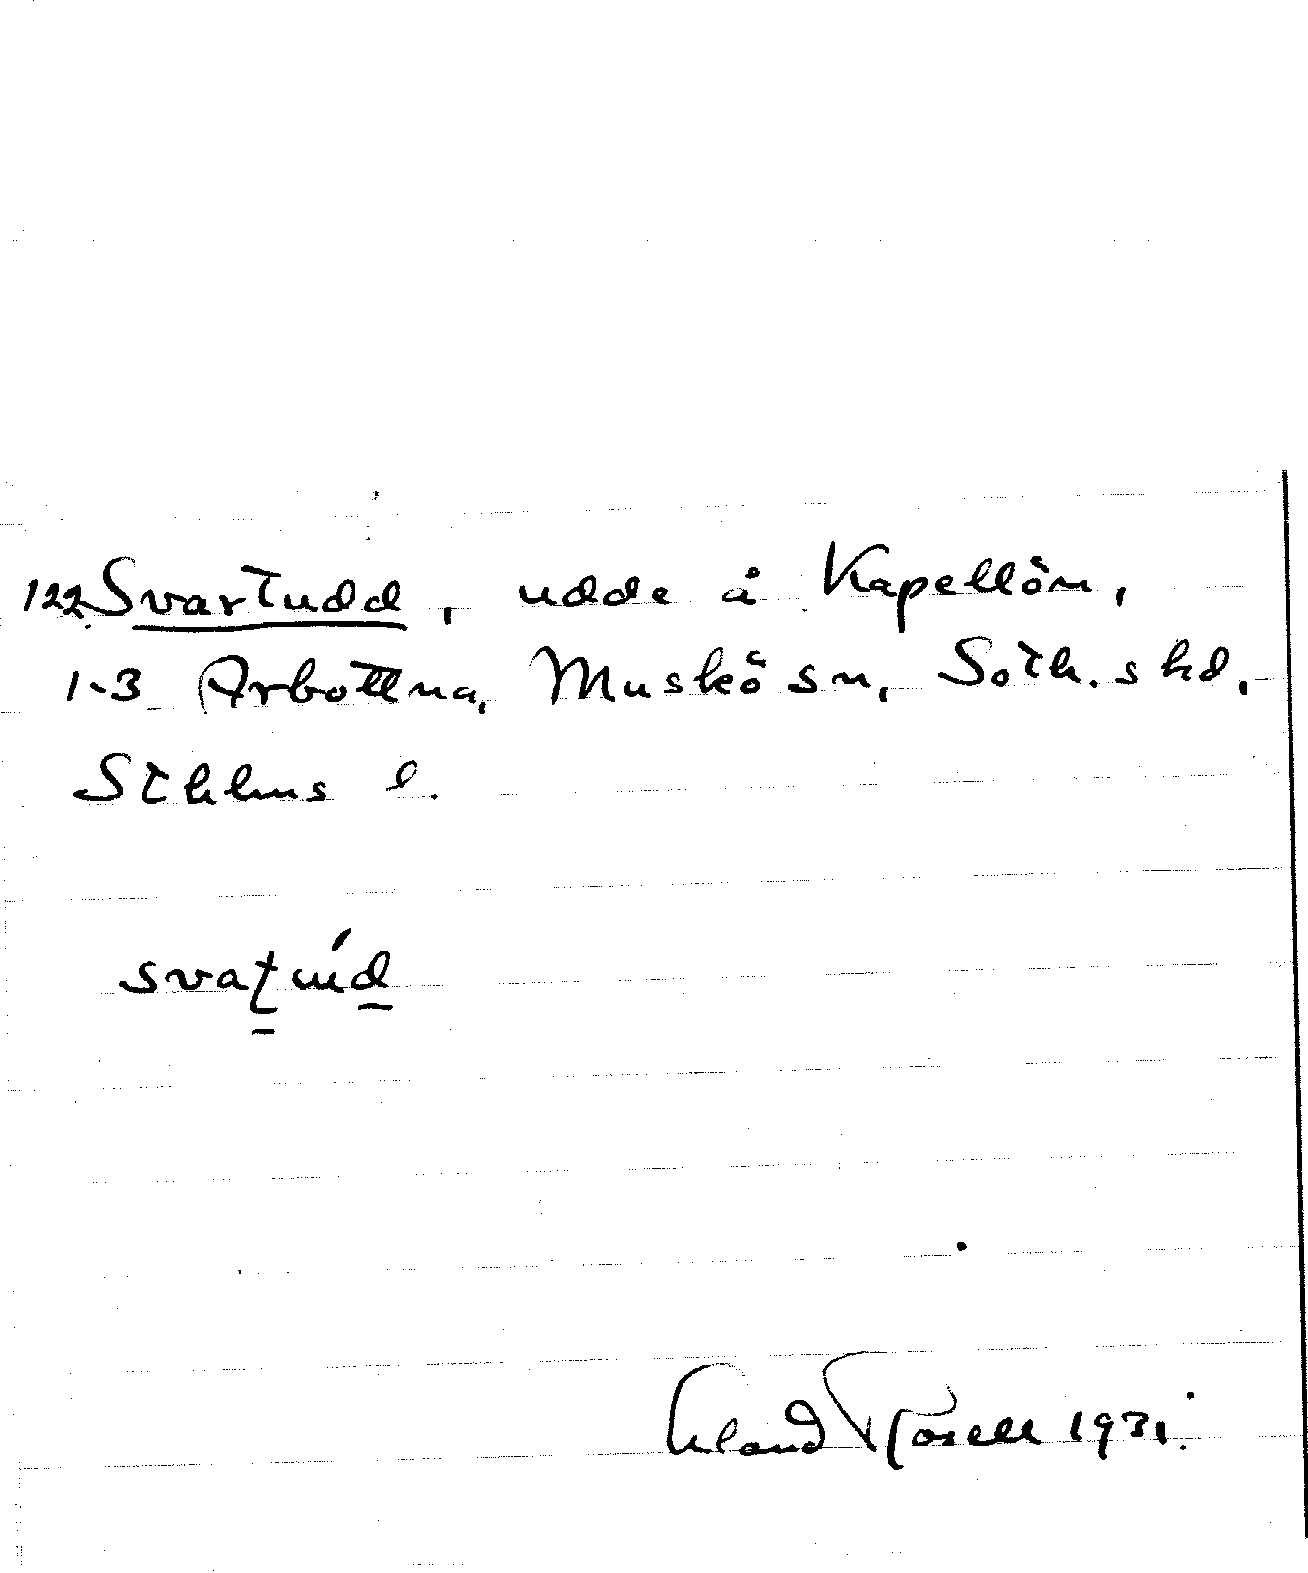 122 Svartudd, udde å Kapellön,
1-3 Arbottna, Muskö sn, Soth. shd,
Sthlms l.
svaṯúḏ
Erland Rosell 1931.